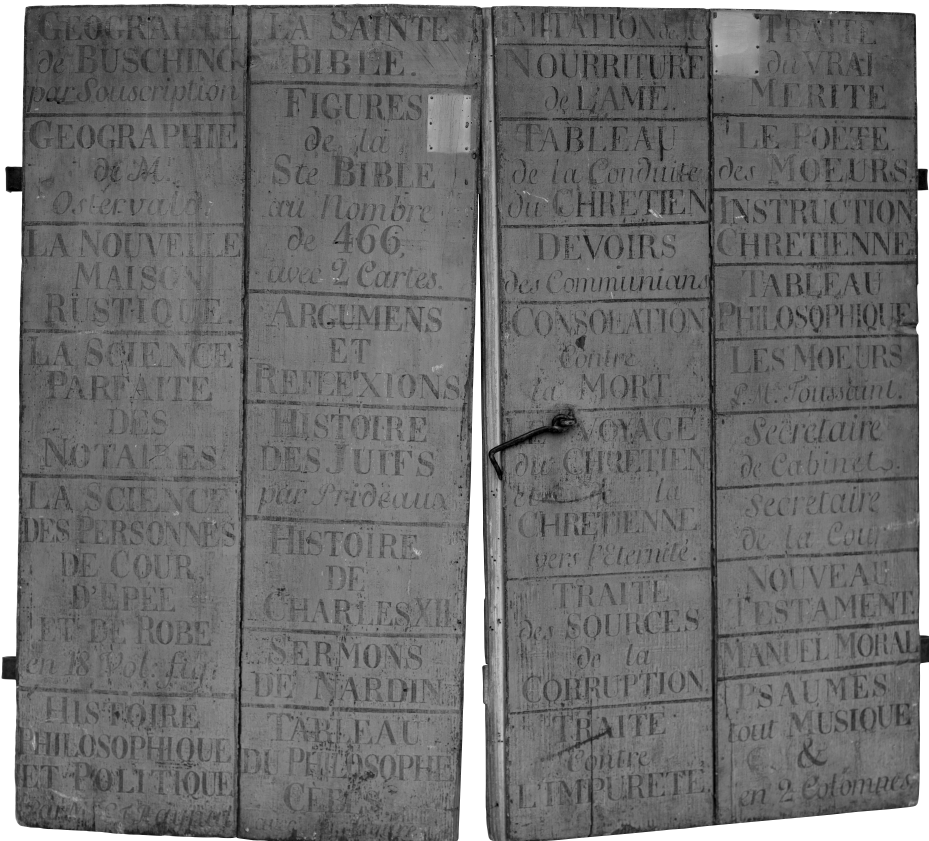 GEOGRAPHIE
de BUSCHING
par Souscription
GEOGRAPHIE
de M.
Ostervald.
LA NOUVELLE
MAISON
RUSTIQUE
LA SCIENCE
PARFAITE
DES
NOTAIRES.
LA SCIENCE
DES PERSONNES
DE COUR,
D'EPEE
ET DE ROBE
en 18 Vol. fig.
HISTOIRE
PHILOSOPHIQUE
ET POLITIQUE
LA SAINTE
BIBLE.
FIGURES
de la
Ste BIBLE
au Nombre
de 466,
avec 2 Cartes.
ARGUMENS
ET
REFLEXIONS.
HISTOIRE
DES JUIFS
par Prideaux
HISTOIRE
DE
CHARLES XII.
SERMONS
DE NARDIN.
TABLEAU
DU PHILOSOPHE
IMITATION
NOURRITURE
de L'AME.
TABLEAU
de la Conduite
du CHRETIEN
DEVOIRS
des Communians
CONSOLATION
contre
la MORT
LE VOYAGE
du CHRETIEN
la
CHRETIENNE
vers l'Eternité.
TRAITE
des SOURCES
de la
CORRUPTION
TRAITE
contre
L'IMPURETE.
TRAITE
du VRAI
MERITE
LE POËTE
des MOEURS.
INSTRUCTION
CHRETIENNE.
TABLEAU
PHILOSOPHIQUE
LES MOEURS
p. Mr. Toussaint.
Secretaire
de Cabinet.
Secretaire
de la Cour
NOUVEAU
TESTAMENT.
MANUEL MORAL
PSAUMES
tout MUSIQUE
&
en 2 Colomnes